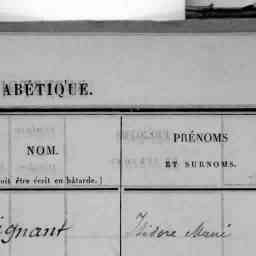 ABÉTIQUE.
NOM.
oit être écrit en bâtarde.)
PRÉNOMS
ET SURNOMS.
ignant
Isidore Marie